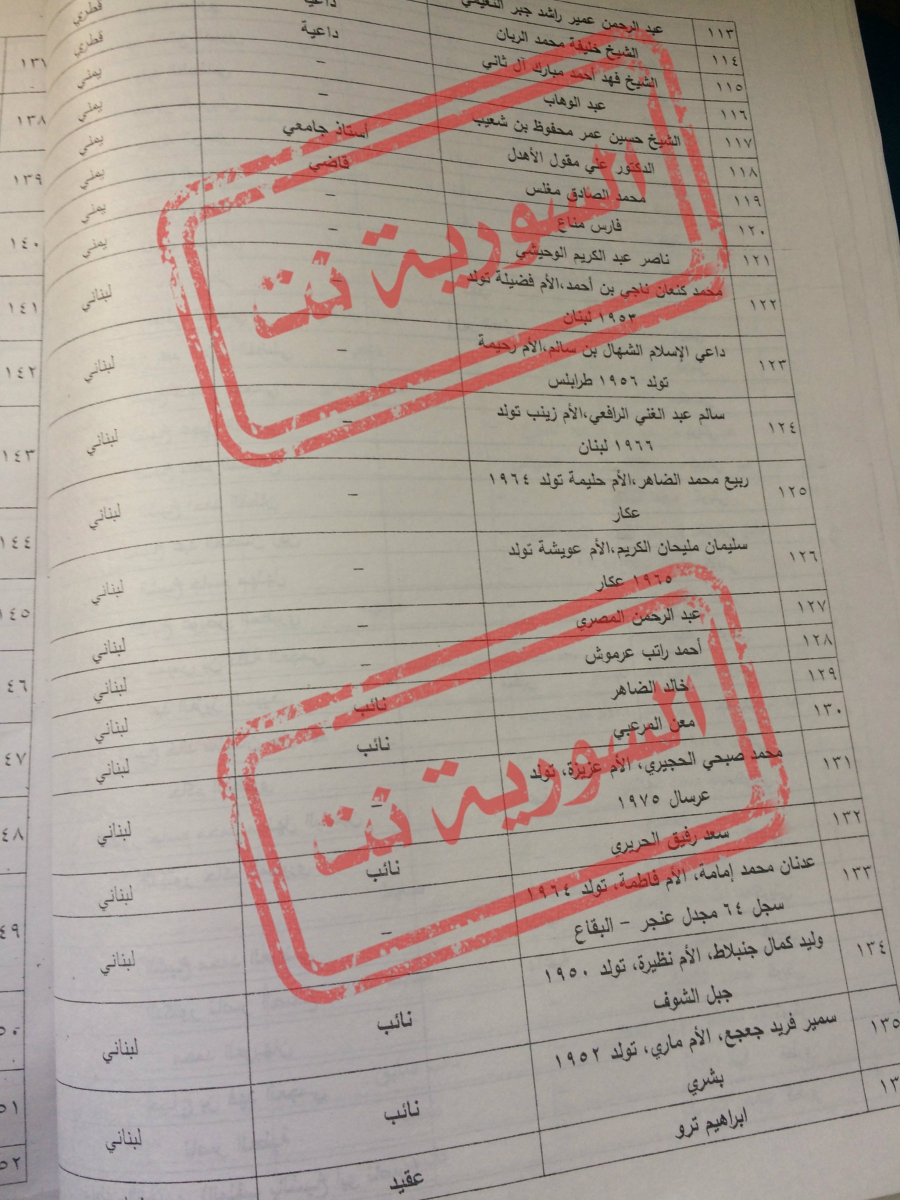 ١١٣ عبد الرحمن عمير راشد جبر النعيمي
١١٤ الشيخ خليفة محمد الربان داعية قطري
١١٥ الشيخ فهد أحمد مبارك آل ثاني داعية قطري
١١٦ عبد الوهاب – يمني
١١٧ الشيخ حسين عمر محفوظ بن شعيب – يمني
١١٨ الدكتور علي مقول الأهدل أستاذ جامعي يمني
١١٩ محمد الصادق مغلس قاضي يمني
١٢٠ فارس مناع – يمني
١٢١ ناصر عبد الكريم الوحيشي – يمني
١٢٢ محمد كنعان ناجي بن أحمد،الأم فضيلة تولد – لبناني
١٩٥٣ لبنان
١٢٣ داعي الإسلام الشهال بن سالم،الأم رحيمة – لبناني
تولد ١٩٥٦ طرابلس
١٢٤ سالم عبد الغني الرافعي،الأم زينب تولد – لبناني
١٩٦٦ لبنان
١٢٥ ربيع محمد الضاهر،الأم حليمة تولد ١٩٦٤ – لبناني
عكار
١٢٦ سليمان مليحان الكريم،الأم عويشة تولد – لبناني
١٩٦٥ عكار
١٢٧ عبد الرحمن المصري – لبناني
١٢٨ أحمد راتب عرموش – لبناني
١٢٩ خالد الضاهر نائب لبناني
١٣٠ معن المرعبي نائب لبناني
١٣١ محمد صبحي الحجيري، الأم عزيزة، تولد – لبناني
عرسال ١٩٧٥
١٣٢ سعد رفيق الحريري نائب لبناني
١٣٣ عدنان محمد إمامة، الأم فاطمة، تولد ١٩٦٤ – لبناني
سجل ٦٤ مجدل عنجر – البقاع
١٣٤ وليد كمال جنبلاط، الأم نظيرة، تولد ١٩٥٠ نائب لبناني
جبل الشوف
١٣٥ سمير فريد جعجع، الأم ماري، تولد ١٩٥٢ نائب لبناني
بشري
١٣ ابراهيم ترو عقيد
السورية نت
السورية نت
١٣٨
١٣٩
١٤٠
١٤١
١٤٢
١٤٣
١٤٤
١٤٥
٤٦
٤٧
٤٨
٤٩
٥٠
٥١
٥٢